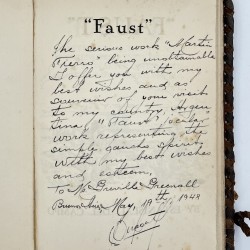 "Faust"
The serious work "Martin
Fierro" being unobtainable
I offer you with my
best wishes and as
souvenir of your visit
to my country, Argen
tina, "Faust",
work representing the
simple gaucho spirit
With my best wishes
and esteem,
To Mr Greville Greenall
Buenos Aires, May, 19th, 1948